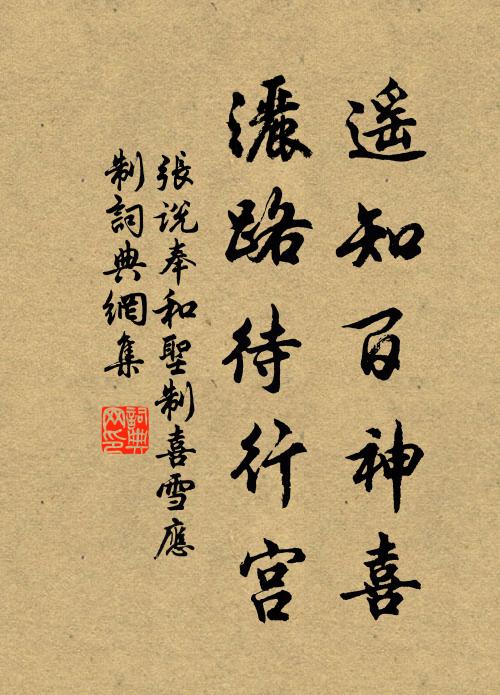 遥知百神喜
灑路待行宫
張説奉和聖制喜雪應
制詞典網集
詞典
网印